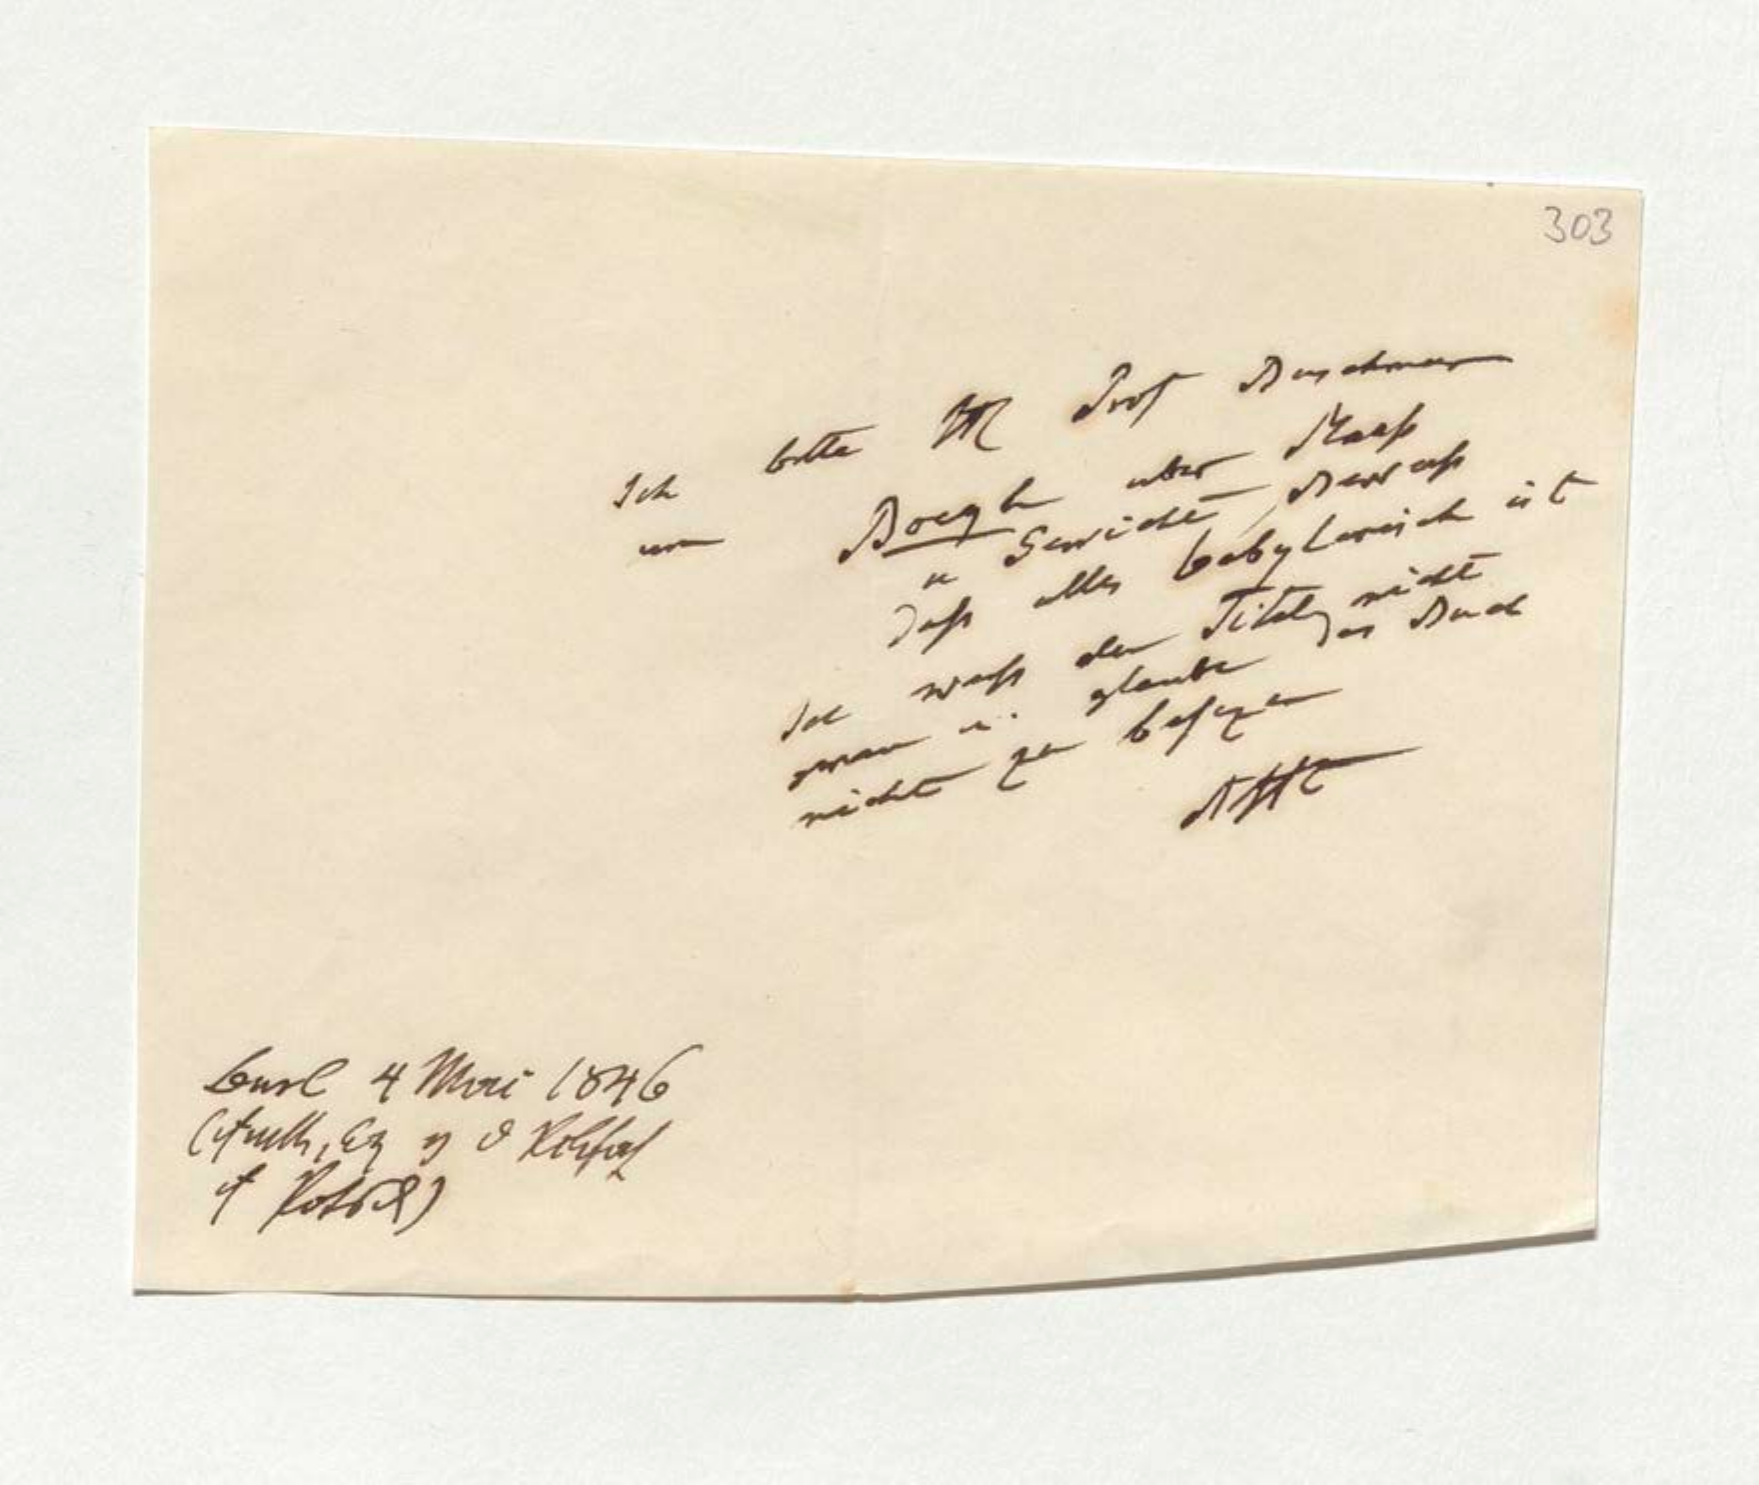 303
Ich bitte H Prof Buschmann
um Boeqh über Maaß
u Gewicht, Beweiß
daß alles babylonisch ist
Ich weiß den Titel nicht
genau u. glaube das Buch
nicht zu besizen
AHt
4 Mai 1846